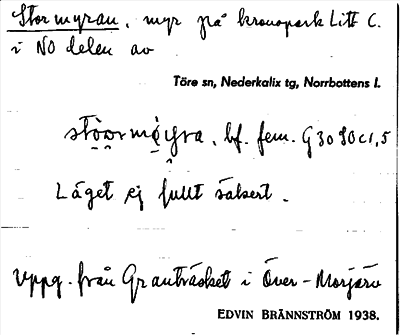 Stormyran, myr på kronopark Litt C.
i NO delen av
Töre sn, Nederkalix tg, Norrbottens l.
bf. fem. G 30 80 c 1,5
Läget ej fullt säkert.
Uppg. från Granträsket i Över-Morjärv
EDVIN BRÄNNSTRÖM 1938.